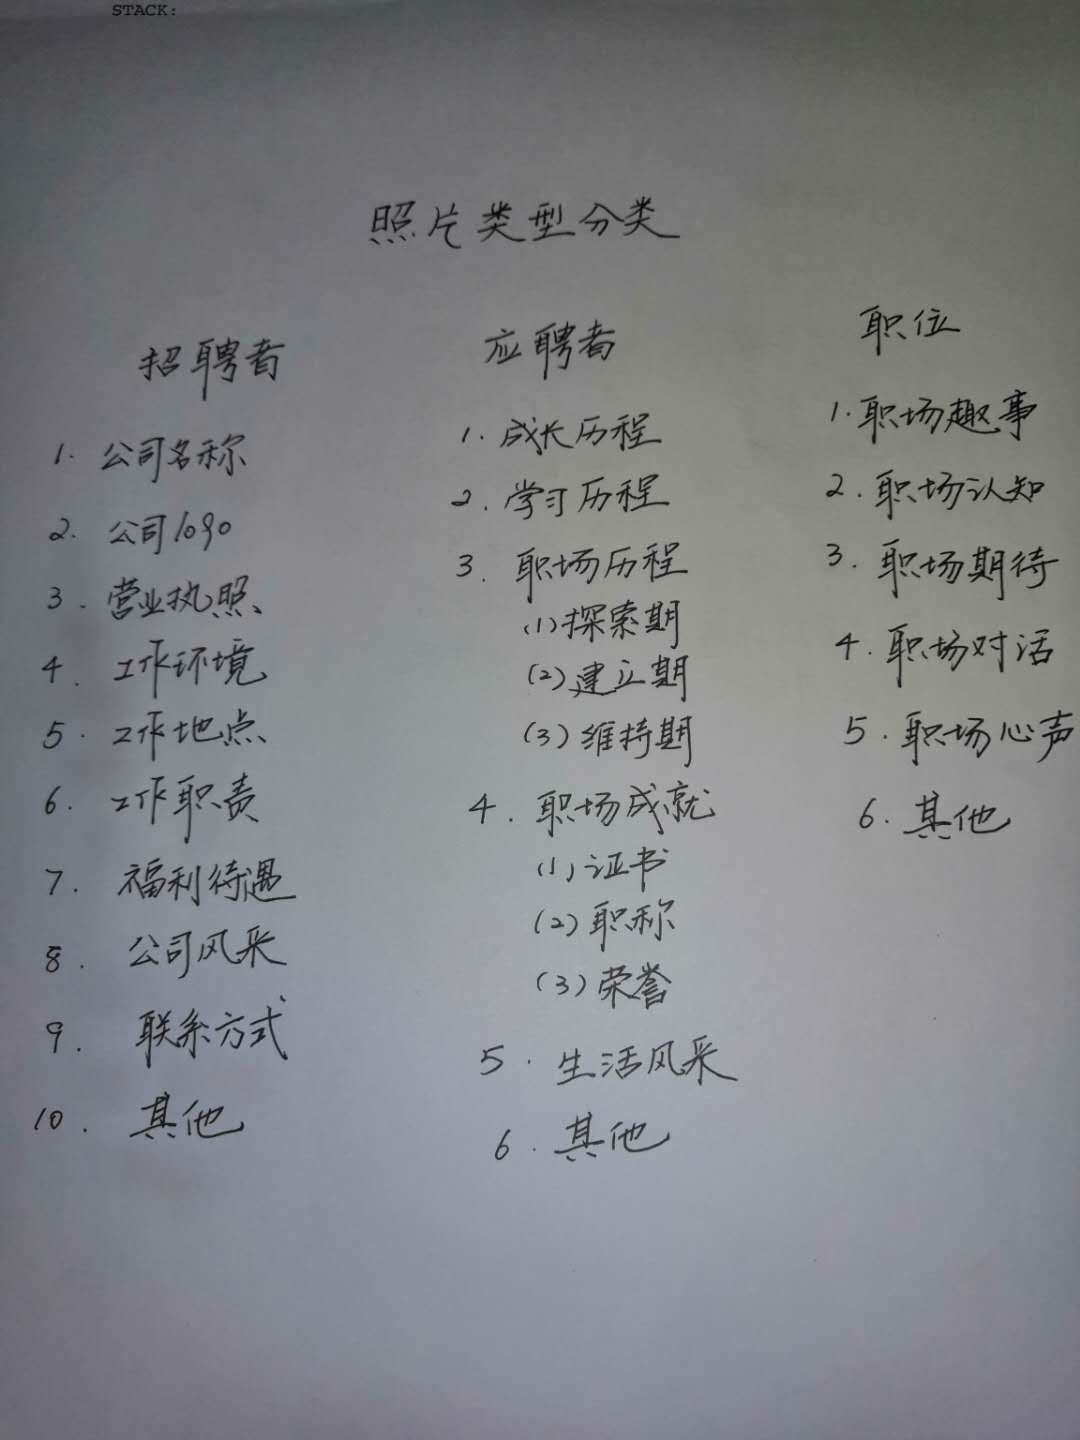 STACK:
照片类型分类
招聘者
1. 公司名称
2. 公司logo
3. 营业执照
4. 工作环境
5. 工作地点
6. 工作职责
7. 福利待遇
8. 公司风采
9. 联系方式
10. 其他
应聘者
1. 成长历程
2. 学习历程
3. 职场历程
(1) 探索期
(2) 建立期
(3) 维持期
4. 职场成就
(1) 证书
(2) 职称
(3) 荣誉
5. 生活风采
6. 其他
职位
1. 职场趣事
2. 职场认知
3. 职场期待
4. 职场对话
5. 职场心声
6. 其他